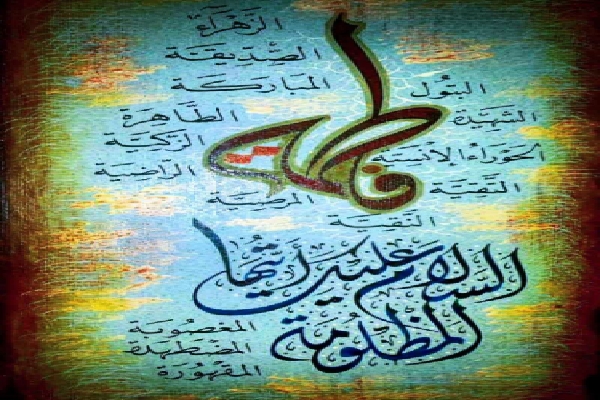 الزهراء
الصديقة
المباركة
البتول
الطاهرة
الشهيدة
الزكية
الحوراء الإنسية
الراضية
التقية
المرضية
النقية
فاطمة
السلام عليك أيتها
المظلومة
المغصوبة
المضطهدة
المقهورة